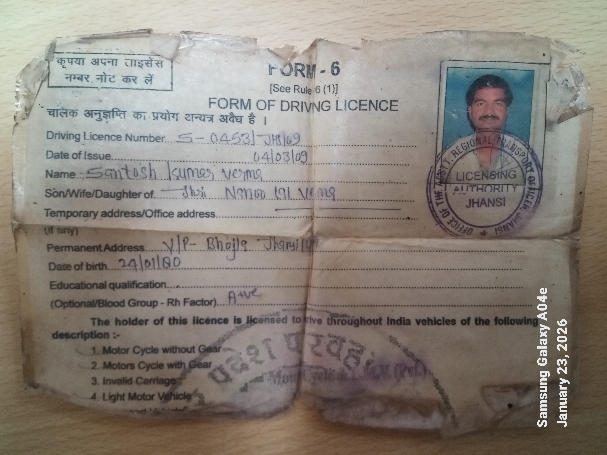 कृपया अपना लाइसेंस
नम्बर नोट कर लें
FORM - 6
[See Rule 6 (1)]
FORM OF DRIVNG LICENCE
चालक अनुज्ञप्ति का प्रयोग यान्यत्र अवैध है ।
Driving Licence Number S-0453/JHS/09
Date of Issue 04/03/09
Name Santosh Kumar Verma
Son/Wife/Daughter of Shri Nanoo lal Verma
Temporary address/Office address
(if any)
Permanent Address V/P- Bhojla Jhansi
Date of birth 24/01/80
Educational qualification
(Optional/Blood Group - Rh Factor) A+ve
The holder of this licence is licensed to drive throughout India vehicles of the following
description :-
1. Motor Cycle without Gear
2. Motors Cycle with Gear
3. Invalid Carriage
4. Light Motor Vehicle
OFFICE OF THE ASSTT. REGIONAL TRANSPORT OFFICER JHANSI
LICENSING
AUTHORITY
JHANSI
प्रदेश परिवहन
Samsung Galaxy A04e
January 23, 2026